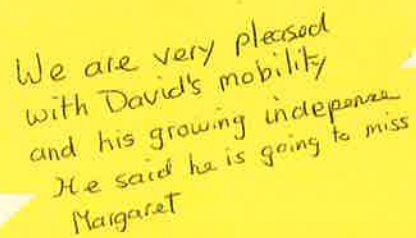 We are very pleased
with David's mobility
and his growing indepenze
He said he is going to miss
Margaret